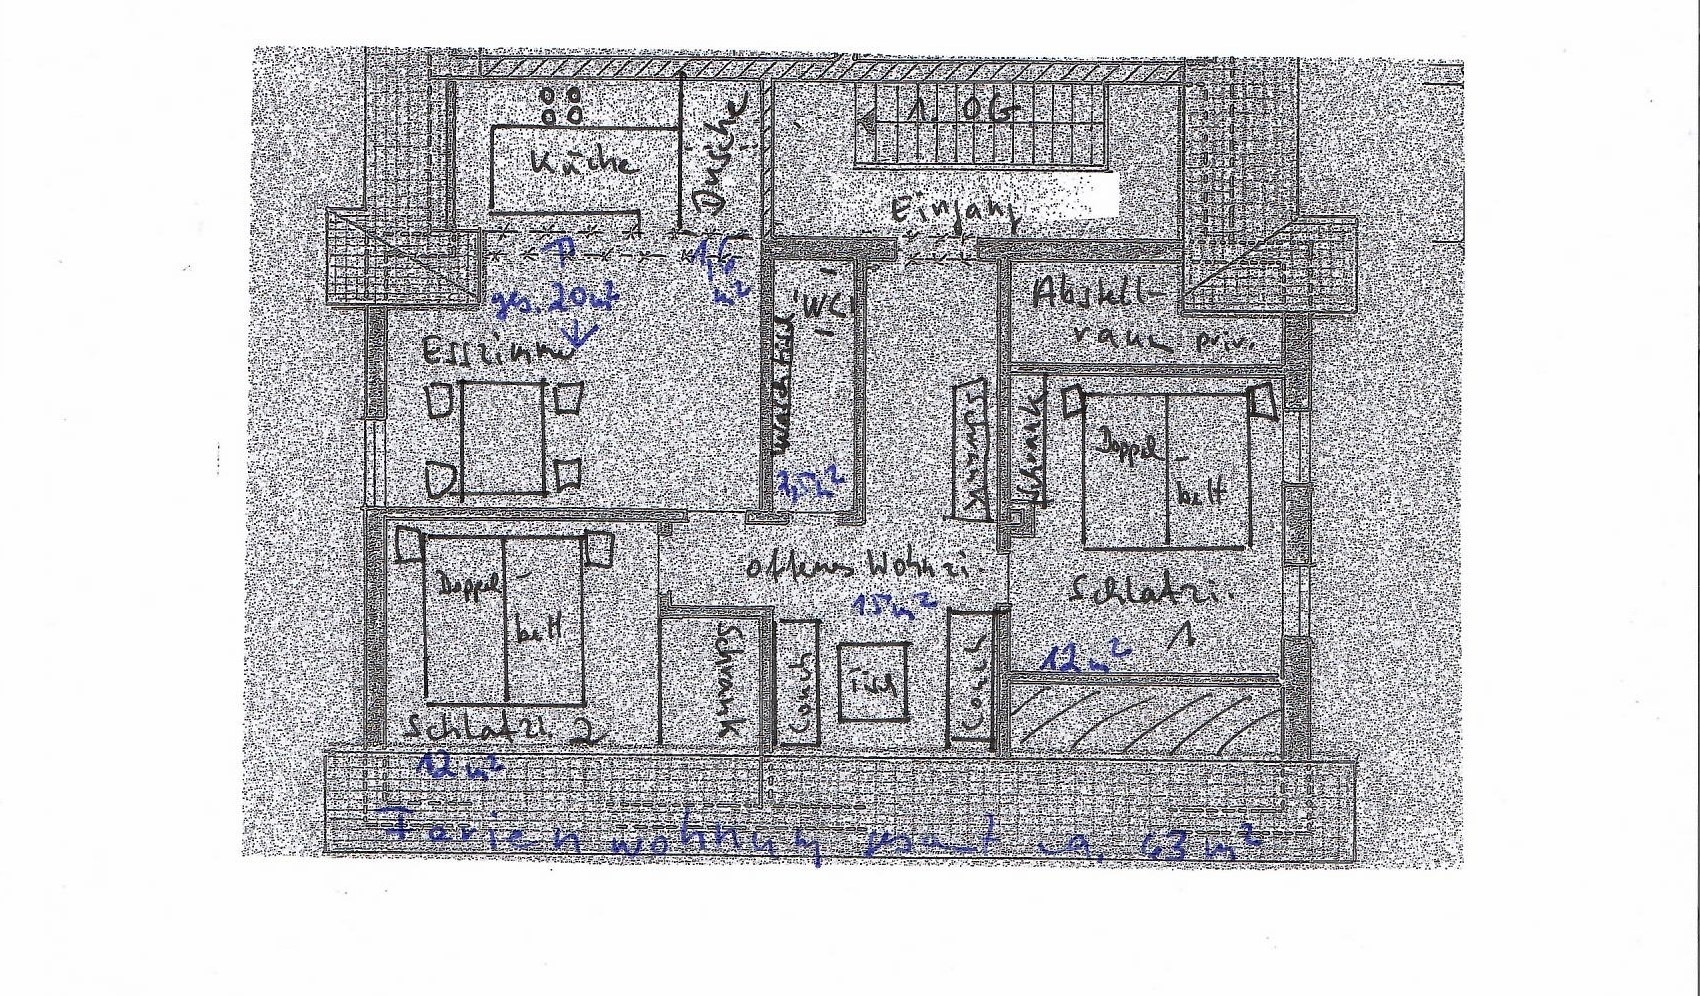 1. OG
Küche
Dusche
Eingang
1,6
m²
ges. 20 m²
WC
Abstell-
raum priv.
Esszimmer
Waschtisch
Schrank
Schrank
Doppel-
bett
offenes Wohnzi.
15 m²
Doppel-
bett
Schlafzi.
1
12 m²
Schrank
Couch
Tisch
Couch
Schlafzi. 2
12 m²
Ferienwohnung gesamt ca. 63 m²